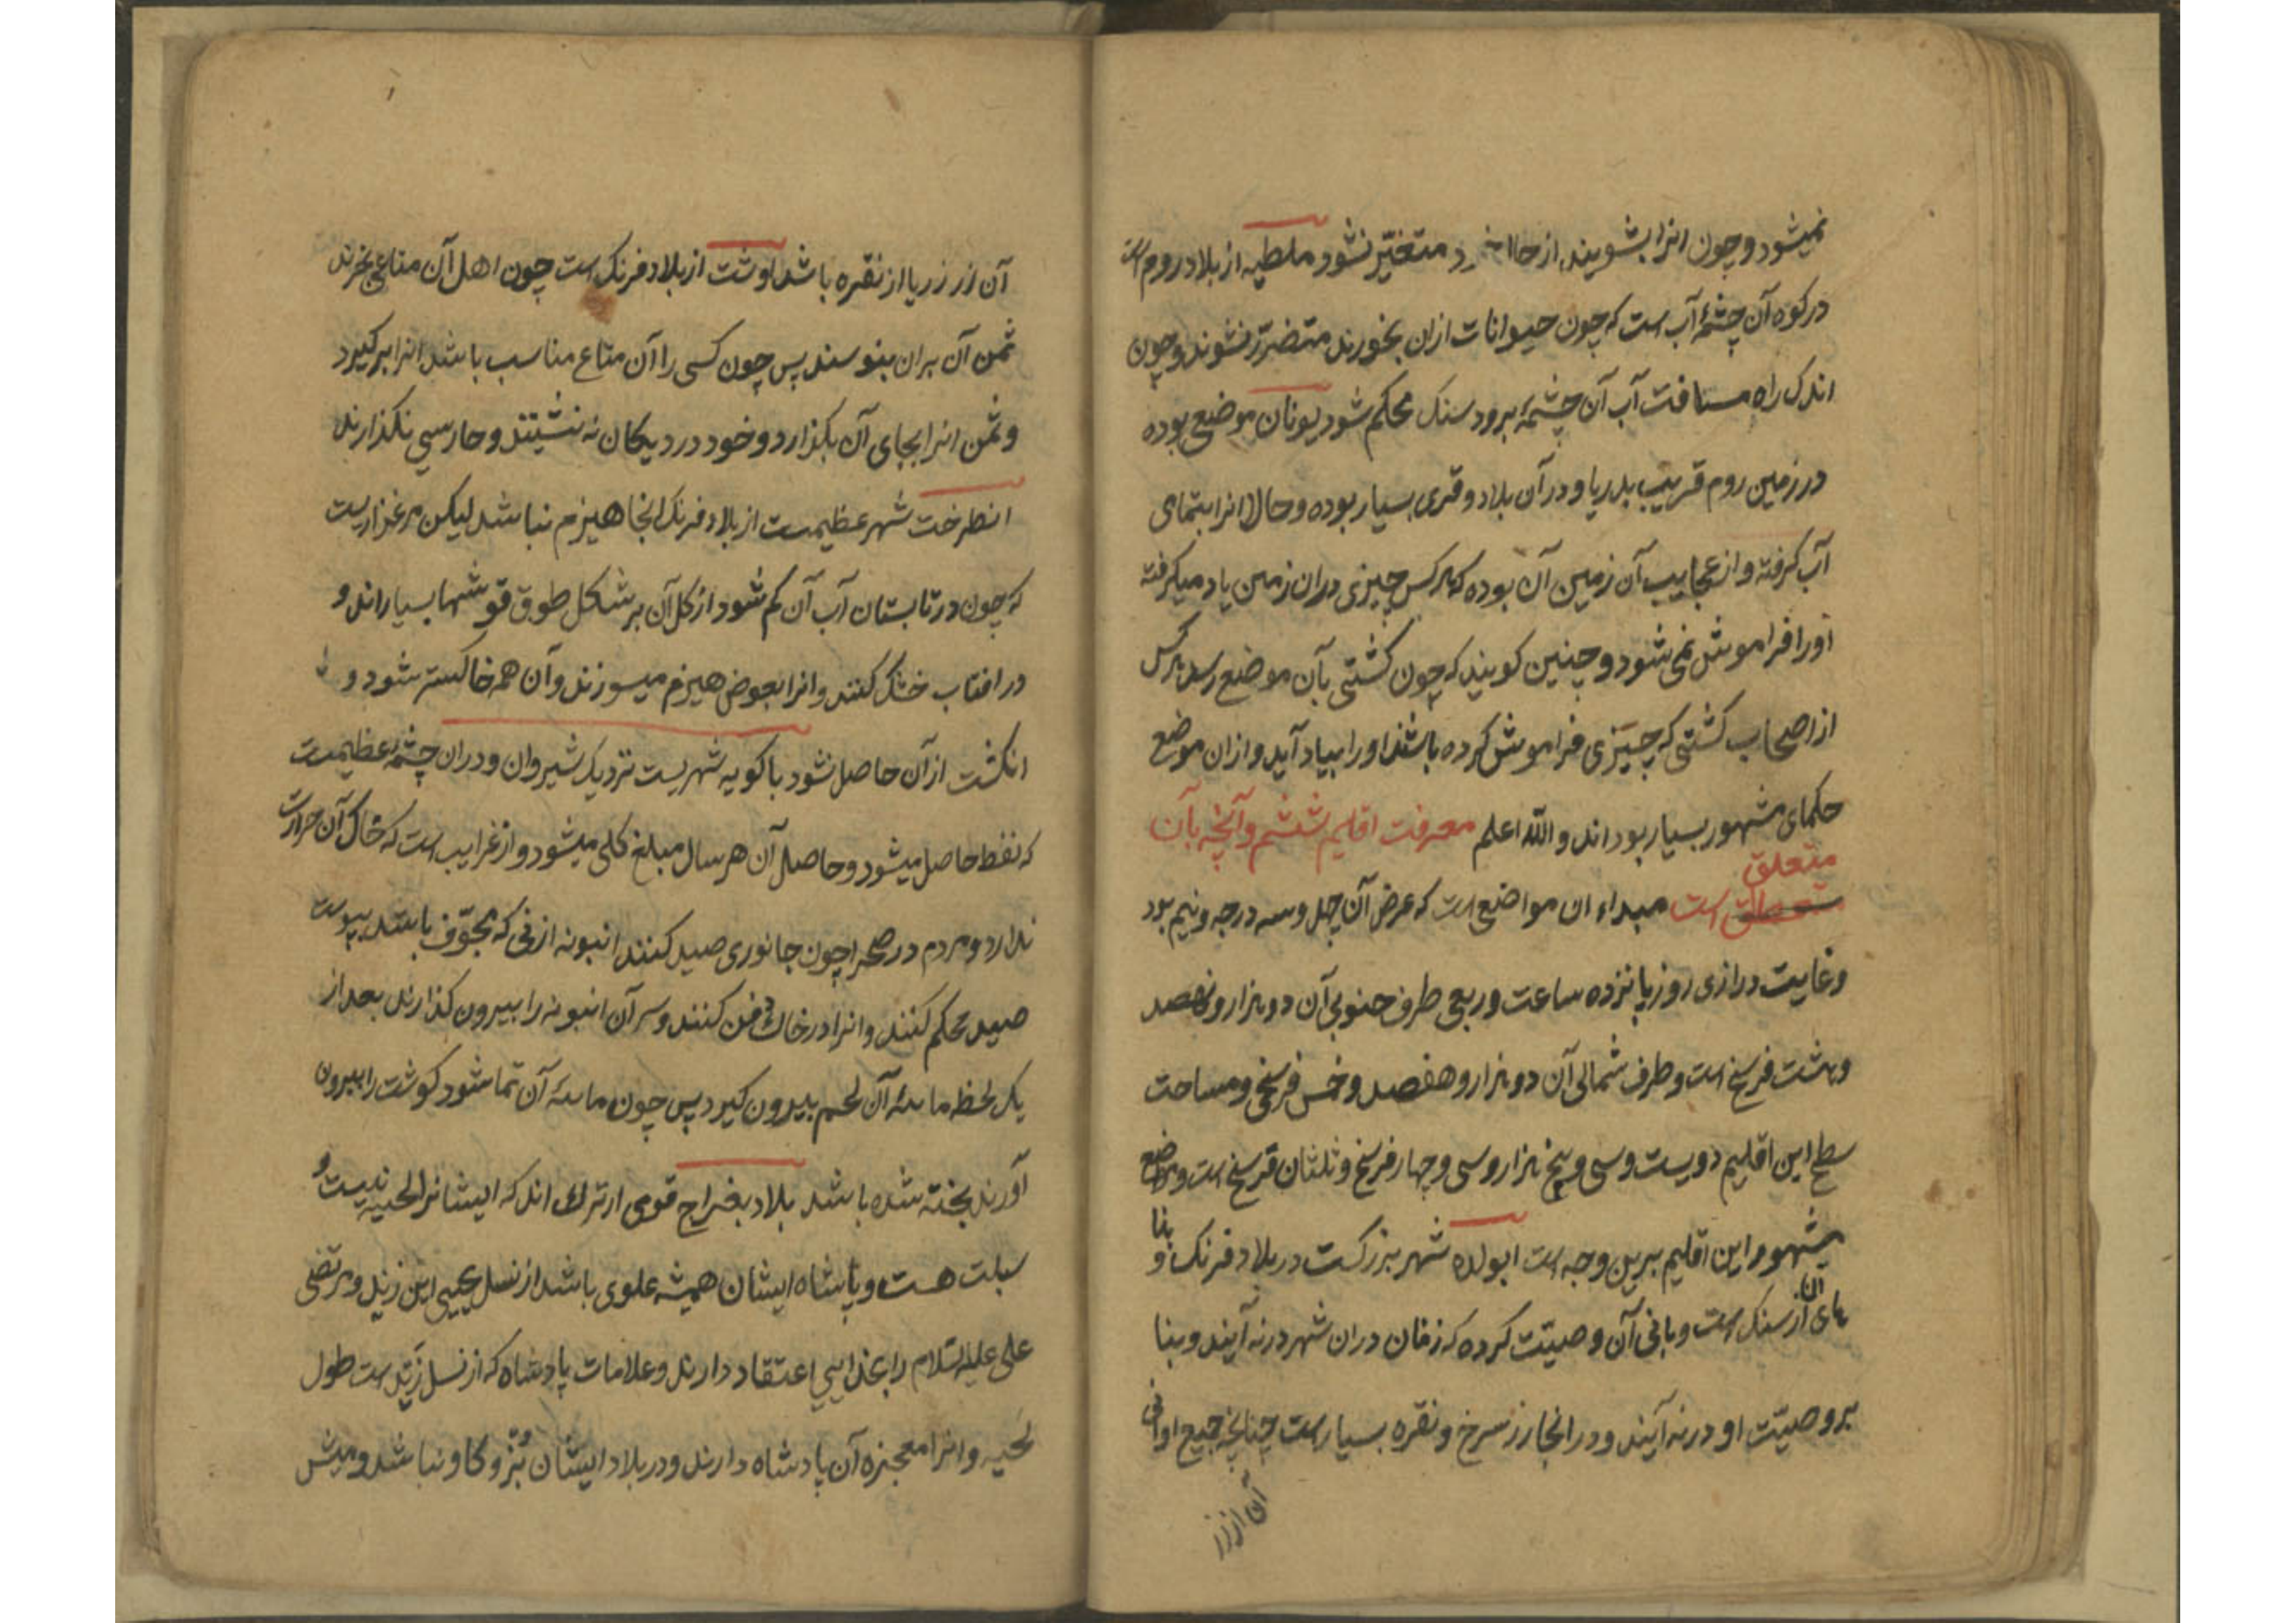 نمیشود و چون انرا بشویند از حال خود متغیّر نشود ملطیه از بلاد روم است
در کوه آن چشمهٔ آب است که چون حیوانات ازان بخورند متضرّر نشوند و چون
اندک راه مسافت آب آن چشمه برود سنک محکم شود یونان موضع بوده
در زمین روم قریب بدریا و در آن بلاد و قری بسیار بوده و حالا انرا بتمامی
آب کرفته و از عجایب آن زمین آن بوده که هر کس چیزی دران زمین یاد میکرفته
اورا فراموش نمی شود و چنین کویند که چون کشتی بآن موضع رسد هر کس
از اصحاب کشتی که چیزی فراموش کرده باشد اورا بیاد آید و ازان موضع
حکمای مشهور بسیار بوداند و الله اعلم معرفت اقلیم ششم و آنچه بآن
متعلق
است مبداء ان مواضع است که عرض آن چهل و سه درجه و نیم بود
و غایت درازی روز پانزده ساعت و ربعی طرف جنوبی آن دو هزار و نهصد
و هشت فرسخ است و طرف شمالی آن دو هزار و هفصد و خمس فرسخی و مساحت
سطح این اقلیم دویست و سی و پنج هزار و سی و چهار فرسخ و ثلثان فرسخ است و مواضع
مشهور این اقلیم برین وجه است ابولده شهر بزرکست در بلاد فرنک و بنا
های آن از سنک است و بانی آن وصیّت کرده که زنان دران شهر درنه آیند و بنا
بر وصیّت او درنه آیند و در انجا زر سرخ و نقره بسیار است چنانچه جمیع اوانی
آن از زر
آن از زر یا از نقره باشد اوشت از بلاد فرنک است چون اهل آن متاعی بخرند
ثمن آن بران بنوسند پس چون کسی را آن متاع مناسب باشد انرا بر کیرد
و ثمن انرا بجای آن بکذارد و خود در دیکان نه نشیتند و حارسی نکذارند
انطرخت شهر عظیمست از بلاد فرنک انجا هیزم نباشد لیکن مرغزاریست
که چون در تابستان آب آن کم شود از کل آن بر شکل طوق قوشها بسیار اند و
در افتاب خشک کنند و انرا بعوض هیزم میسوزند و آن همه خاکستر شود و
انکشت از آن حاصل نشود باکویه شهریست نزدیک شیروان و دران چشمهٔ عظیمست
که نفط حاصل میشود و حاصل آن هر سال مبلغ کلی میشود و از غرایب است که خاک آن حرارت
ندارد و مردم در صحرا چون جانوری صید کنند انبونه از نی که مجوّف باشد بپوست
صید محکم کنند و انرا در خاک دفن کنند و سر آن انبونه را بیرون کذارند بعد از
یک لحظه مایدهٔ آن لحم بیرون کیرد پس چون مایدهٔ آن تما شود کوشت را بیرون
آورند پخته شده باشد بلاد بغراج قومی از ترک اند که ایشانرا لحیه نیست و
سبلت هست و پاشاه ایشان همیشه علوی باشد از نسل یحیی ابن زید و مرتضی
علی علیه السّلام را بخدایی اعتقاد دارند و علامات پادشاه که از نسل زید است طول
لحیه و انرا معجزه آن پادشاه دارند و در بلاد ایشان بُز و کاو نباشد و میش